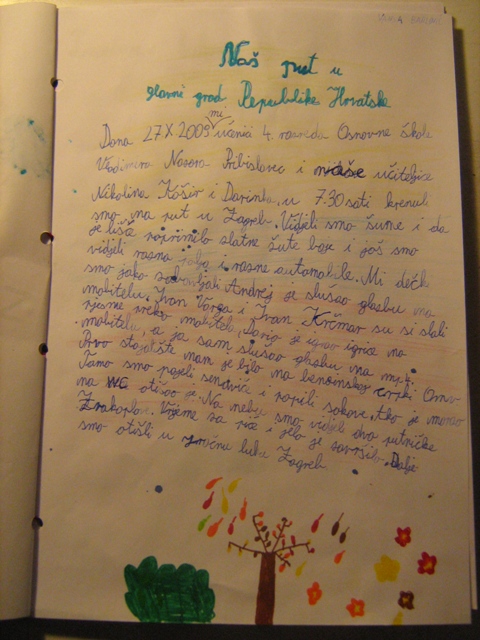 Naš put u
glavni grad Republike Hrvatske
mi
Dana 27 X 2009 učenici 4. razreda Osnovne škole
Vladimira Nazora Pribislavec i naše učiteljice
Nikolina Košir i Darinka, u 7:30 sati krenuli
smo na put u Zagreb. Vidjeli smo šume i da
je lišće poprimilo zlatne žute boje i još smo
vidjeli razna polja i razne automobile. Mi dečk
smo jako Andrej je slušao glazbu na
mobitelu. Ivan Varga i Ivan Krčmar su si slali
pjesme preko mobitela, je igrao igrice na
mobitelu, a ja sam slušao glazbu na mp4.
Prvo stajalište nam je bilo na benzinskoj crpki Omv
Tamo smo pojeli sendviče i popili sokove, tko je morao
na WC otišao je. Na nebu smo vidjeli dva putničke
Zrakoplov. Vrijeme za piće i jelo je završilo. Dalje
smo otišli u zračnu luku Zagreb